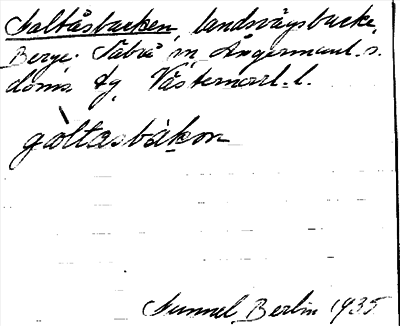 Galtåsbacken, landsvägsbacke,
Berge. Säbrå sn Ångermanl. s.
doms. tg Västernorrl. l.
gòltasbàkon
Gunnel Berlin 1935